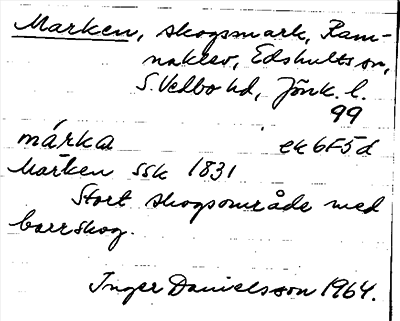 Marken, skogsmark, Ram-
naklev, Edshults sn,
S. Vedbo hd, Jönk. l.
99
márka ek 6F5d
Marken ssk 1831
Stort skogsområde med
barrskog.
Inger Danielsson 1964.